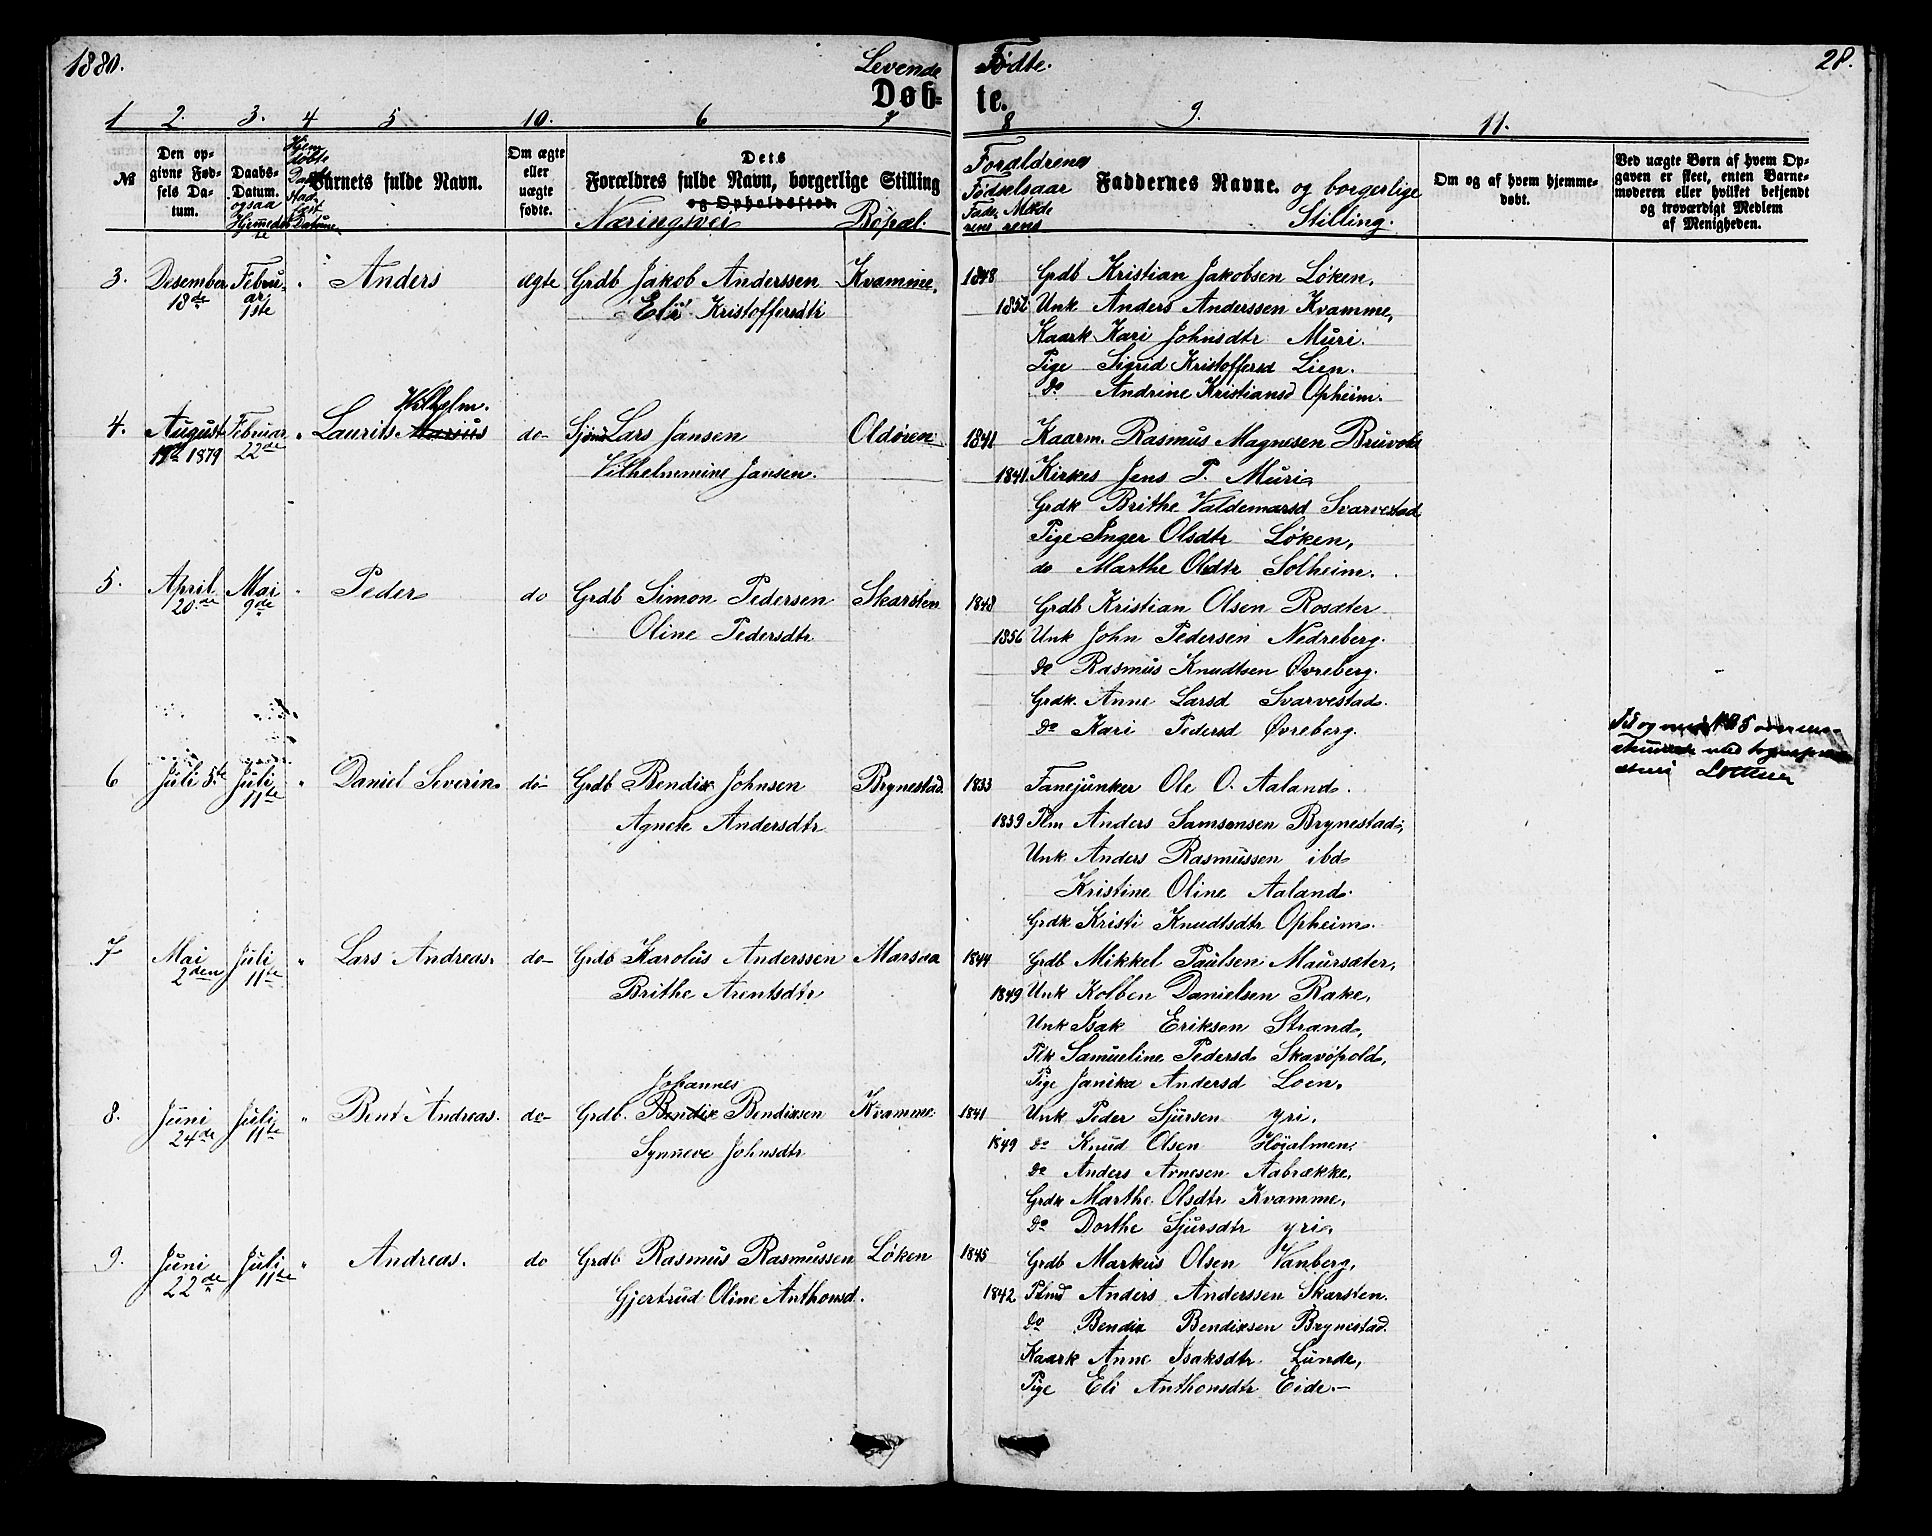 1880. Levende Fødte. 28.
Døb- te.
1 2. 3. 4 5 10. 6 7 8 9. 11.
№
Den op-
givne Fød-
sels Da-
tum.
Daabs-
Datum.
ogsaa
Hjemmedøb
te
Hjem
døbte
Daabs
Stad-
fæst.
Datum
Barnets fulde Navn.
Om ægte
eller
uægte
fødte.
Dets
Forældres fulde Navn, borgerlige Stilling
og Opholdssted.
Næringsvei Bopæl.
Forældrenes
Fødselsaar
Fade- Mode
rens rens
Faddernes Navne. og borgerlige
Stilling.
Om og af hvem hjemme-
døbt.
Ved uægte Børn af hvem Op-
gaven er skeet, enten Barne-
moderen eller hvilket bekjendt
og troværdigt Medlem
af Menigheden.
3. Desember Febru- " Anders ægte Grdb Jakob Anderssen Kvamme. 1848 Grdb Kristian Jakobsen Løken.
18de ar 1ste Eli Kristoffersdtr 1852 Unk Anders Anderssen Kvamme,
Kaark Kari Johnsdtr Muri.
Pige Sigrid Kristoffersd Lien.
do Andrine Kristiansd Opheim.
Wilhelm.
4. August Februar " Laurits Marius do Sjøm Lars Jansen Oldøren 1841 Kaarm. Rasmus Magnesen Bruvold
1879 22de Vilhelmmine Jansen. 1841. Kirkes Jens P. Muri
Grdk Brithe Valdemarsd Svarvestad
Pige Inger Olsdtr Løken,
do Marthe Olsdtr Solheim.
5. April Mai " Peder do Grdb Simon Pedersen Skarsten 1848 Grdb Kristian Olsen Rosæter
20de 9de Oline Pedersdtr 1856 Unk John Pedersen Nedreberg.
do Rasmus Knudtsen Øvreberg.
Grdk. Anne Larsd Svarvestad.
do Kari Pedersd Øvreberg.
6 Juli 5te Juli " Daniel Severin do Grdb Bendix Johnsen Brynestad. 1833 Fanejunker Ole O. Aaland.
11te Agnete Andersdtr 1839 Plm Anders Samsonsen Brynestad,
Unk Anders Rasmussen ibd
Kristine Oline Aaland.
Grdk Kristi Knudtsdtr Opheim.
7 Mai Juli " Lars Andreas. do Grdb Karolus Anderssen Marsaa 1844 Grdb Mikkel Paulsen Maursæter,
2den 11te Brithe Arentsdtr 1849 Unk Kolben Danielsen Rake,
Unk Isak Eriksen Strand,
Plk Samueline Pedersd Skavøpold,
Pige Janika Andersd Loen.
Johannes
8. Juni Juli " Bent Andreas. do Grdb. Bendix Bendixsen Kvamme 1841 Unk Peder Sjursen Yri,
24de 11te Synneve Johnsdtr 1849 do Knud Olsen Høialmen,
do Anders Arnesen Aabrække,
Grdk Marthe Olsdtr Kvamme,
do Dorthe Sjursdtr Yri,
9. Juni Juli " Andreas. do Grdb Rasmus Rasmussen Løken 1845 Grdb Markus Olsen Vanberg,
22de 11te Gjertrud Oline Anthonsd. 1842 Anders Anderssen Skarsten.
do Bendix Bendixsen Brynestad.
Kaark Anne Isaksdtr Lunde,
Pige Eli Anthonsdtr Eide.